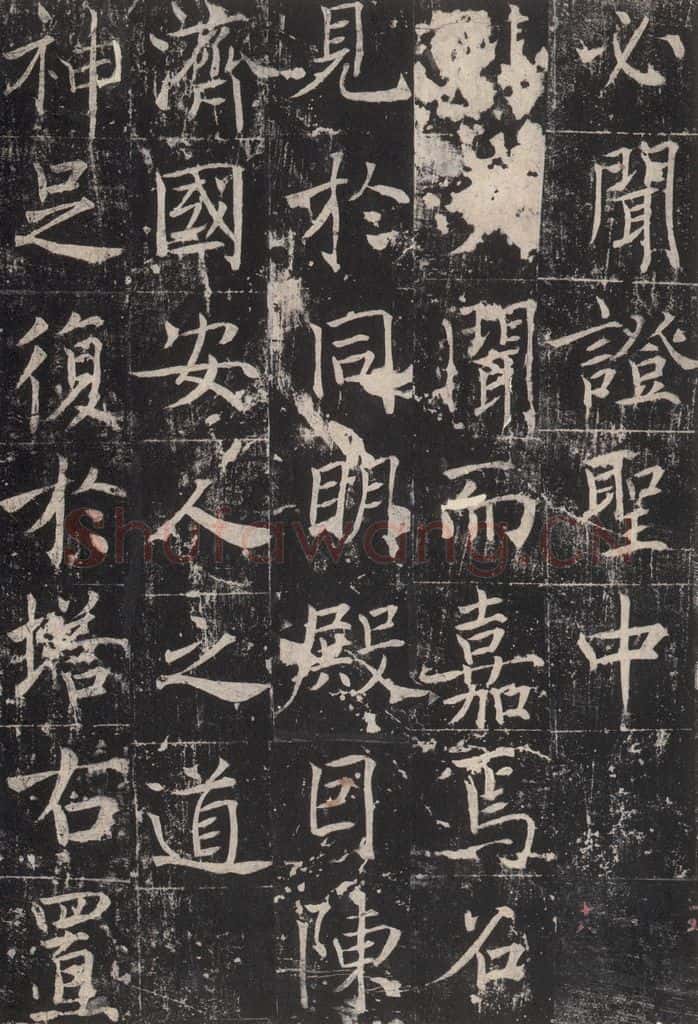 必聞證聖中
聞而嘉焉召
見於同明殿因陳
濟國安人之道
神足復於塔右置
Shufawang.CN